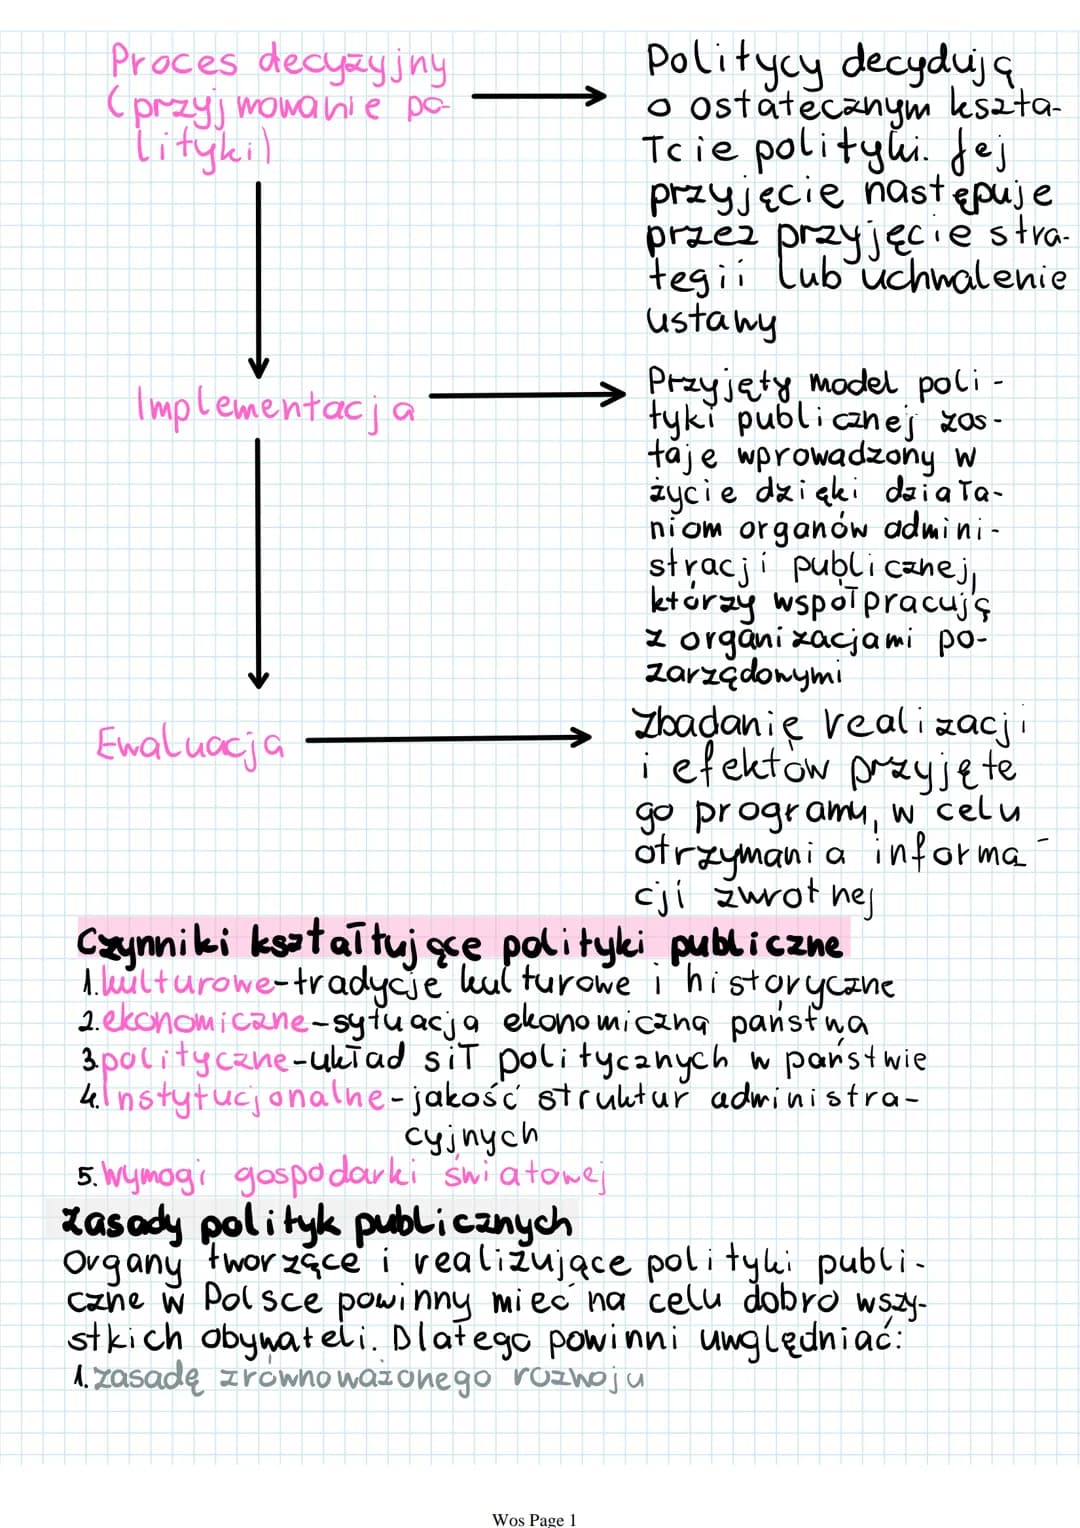 Proces decyzyjny
(przyjmowanie po-
lityki)
Politycy decydują
o ostatecznym kszta-
łcie polityki. Jej
przyjęcie następuje
przez przyjęcie stra-
tegii lub uchwalenie
ustawy
Implementacja
Przyjęty model poli-
tyki publicznej zos-
taje wprowadzony w
życie dzięki działa-
niom organów admini-
stracji publicznej,
którzy współpracują
z organizacjami po-
zarządowymi
Ewaluacja
Zbadanie realizacji
i efektów przyjęte
go programu, w celu
otrzymania informa-
cji zwrotnej
Czynniki kształtujące polityki publiczne
1.kulturowe-tradycje kulturowe i historyczne
2.ekonomiczne-sytuacja ekonomiczna państwa
3.polityczne-układ sił politycznych w państwie
4.Instytucjonalne-jakość struktur administra-
cyjnych
5.Wymogi gospodarki światowej
Zasady polityk publicznych
Organy tworzące i realizujące polityki publi-
czne w Polsce powinny mieć na celu dobro wszy-
stkich obywateli. Dlatego powinni uwględniać:
1.zasadę zrównoważonego rozwoju
Wos Page 1